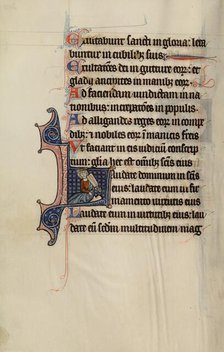 Exultabunt sancti in gloria: leta
buntur in cubilibꝫ suis:
Exultatōes dei in gutture eoꝝ: et
gladii ancipites in manibꝫ eoꝝ
Ad faciendam uindictam in na
tionibus: increpatōes in populis
Ad alligandos reges eoꝝ in comped
dibꝫ: et nobiles eoꝝ ī manicis ferreis
Ut faciant in eis iudiciū conscrip
tum: gl̄ia hec est om̄ibꝫ scīs eius
Laudate dominum in scīs
eius: laudate eum in fir
mamento uirtutis eius
Laudate eum in uirtutibꝫ eius: lau
date eum scdm̄ multitudinem mag